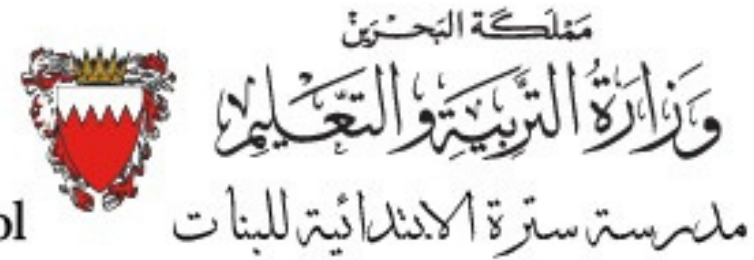 مَمْلَكَة البَحْرَيْن
وَزَارَةُ التَّرْبِيَةِ وَالتَّعْلِيمِ
مدرسة سترة الابتدائية للبنات
ol